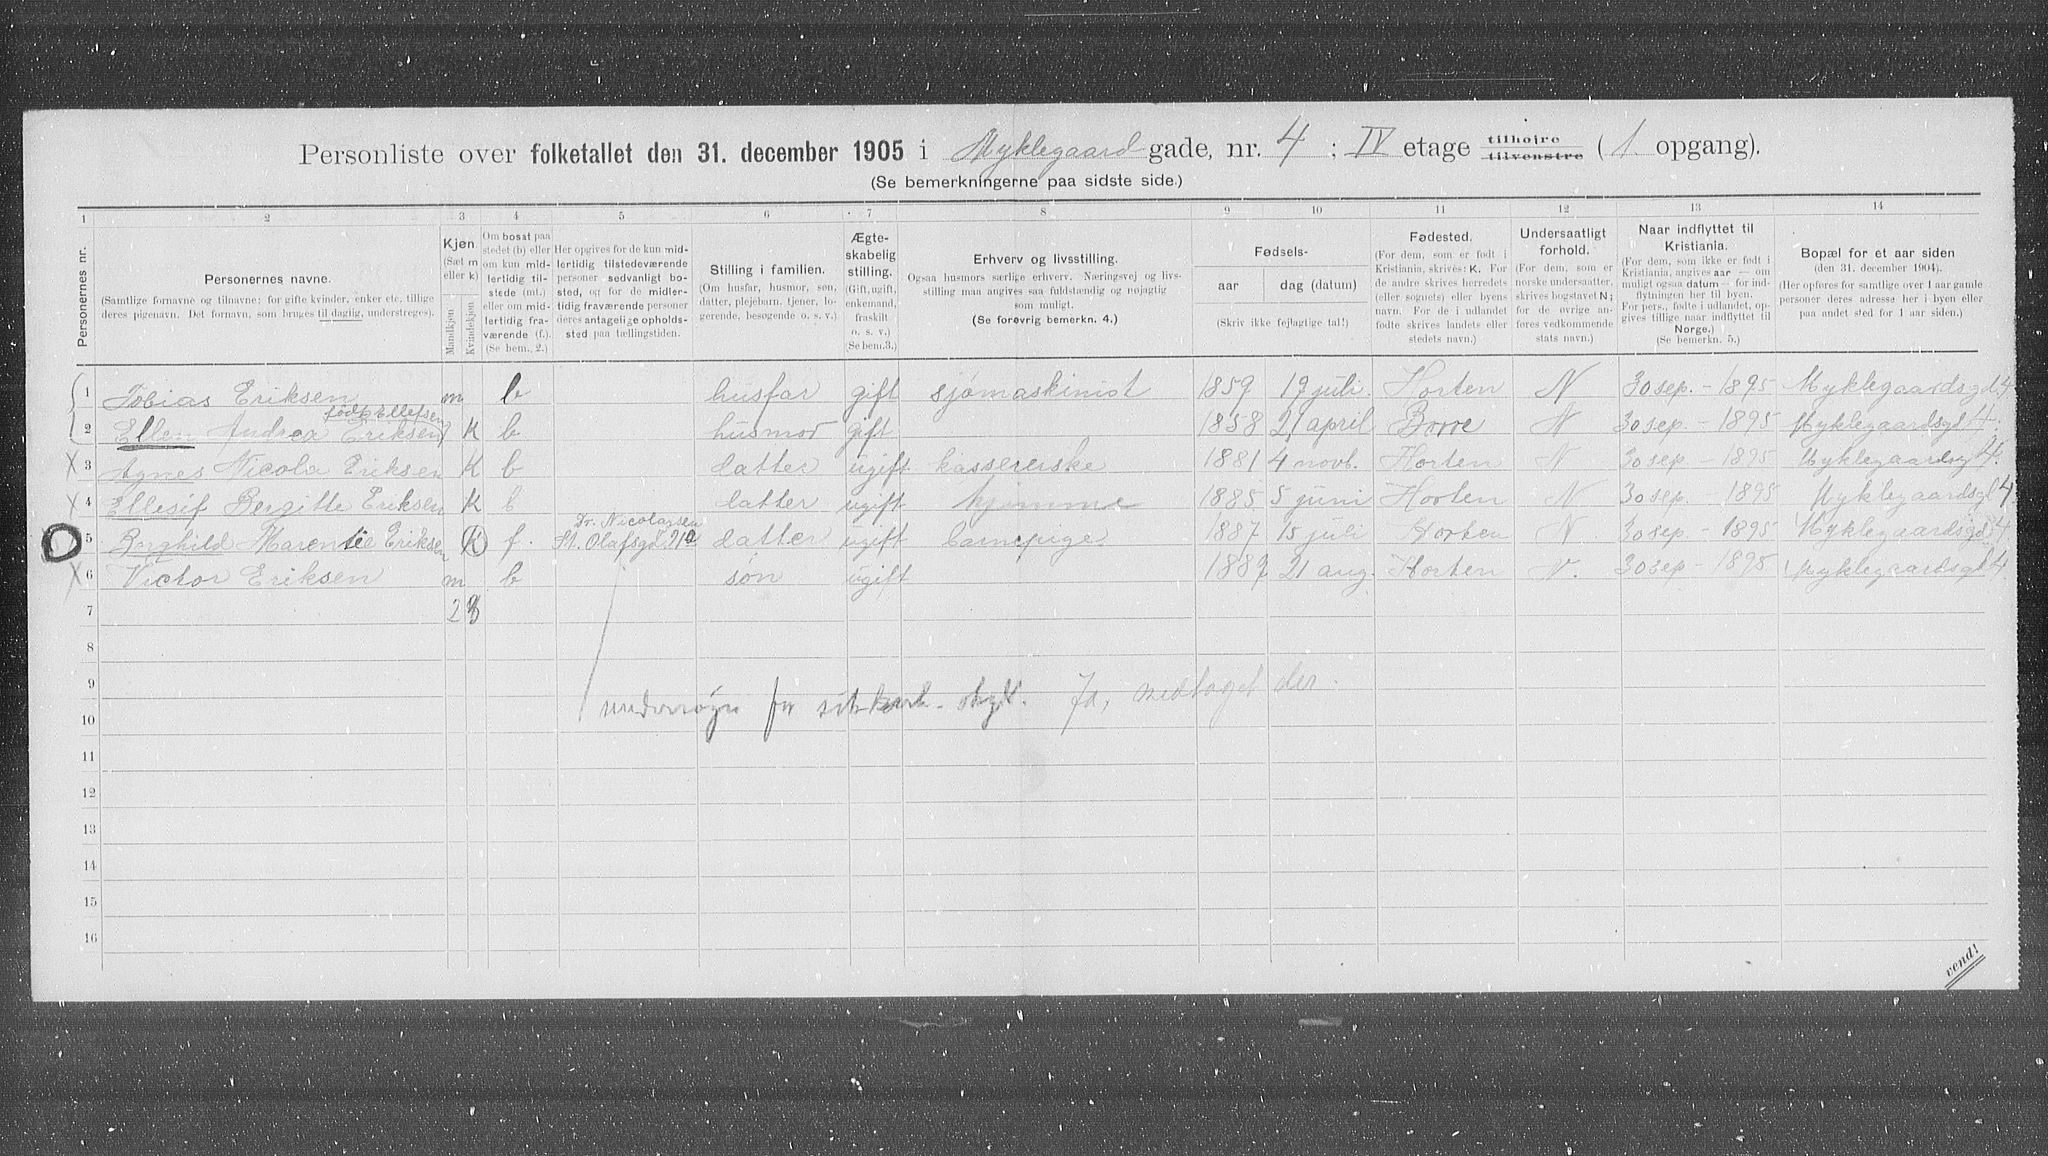 Personliste over folketallet den 31. december 1905 i Myklegaard gade, nr. 4 ; IV etage tilhøire tilvenstre (1. opgang).
(Se bemerkningerne paa sidste side.)
1 2 3 4 5 6 7 8 9 10 11 12 13 14
Personernes nr.
Personernes navne.
(Samtlige fornavne og tilnavne; for gifte kvinder, enker etc. tillige deres pigenavn. Det fornavn, som bruges til daglig, understreges).
Kjøn
(Sæt m eller k)
Mandkjøn
Kvindekjøn
Om bosat paa stedet (b) eller om kun midlertidig tilstede (mt.) eller om midlertidig fraværende (f.). (Se bem. 2.)
Her opgives for de kun midlertidig tilstedeværende personer sedvanligt bosted, og for de midlertidig fraværende personer deres antagelige opholdssted paa tællingstiden.
Stilling i familien.
(Om husfar, husmor, søn, datter, plejebarn, tjener, logerende, besøgende o. s. v.)
Ægteskabelig stilling.
(Gift, ugift, enkemand, fraskilt o. s. v.) Se bem.3.)
Erhverv og livsstilling.
Ogsaa husmors særlige erhverv. Næringsvej og livsstilling maa angives saa fuldstændig og nøjagtig som muligt.
(Se forøvrig bemerkn. 4.)
Fødsels-
aar dag (datum)
(Skriv ikke fejlagtige tal!)
Fødested.
(For dem, som er født i Kristiania, skrives: K. For de andre skrives herredets (eller sognets) eller byens navn. For de i udlandet fødte skrives landets eller stedets navn.)
Undersaatligt forhold.
(For dem, som er norske undersaatter, skrives bogstavet N; for de øvrige anføres vedkommende stats navn.)
Naar indflyttet til Kristiania.
(For dem, som ikke er født i Kristiania, angives aar — om muligt ogsaa datum — for indflytningen her til byen. For pers. fødte i udlandet, opgives tillige naar indflyttet til Norge.)
(Se bemerkn. 5.)
Bopæl for et aar siden
(den 31. december 1904.)
(Her opføres for samtlige over 1 aar gamle personer deres adresse her i byen eller paa andet sted for 1 aar siden.)
1 Tobias Eriksen m b husfar gift sjømaskinist 1859 19 juli. Horten N 30 sep. - 1895 Myklegaardsgd. 4
født Ellefsen
2 Ellen Andrea Eriksen K b husmor gift 1858 21 april Borre N 30 sep. - 1895 Myklegaardsgd 4.
3 Agnes Nicola Eriksen K b datter ugift kassererske 1881 4 novb. Horten N 30 sep - 1895 Myklegaardsg 4.
4 Ellesif Bergitte Eriksen K b datter ugift hjemme 1885 5 juni Horten N 30 sep. - 1895 Myklegaardsgd 4.
Dr. Nicolaysen
5 Borghild Marentie Eriksen K f. St. Olafsgd 21a datter ugift barnepige. 1887 15 juli Horten N. 30 sep. - 1895 Myklegaardsgd 4
6 Victor Eriksen m b søn ugift 1889 21 aug. Horten N. 30 sep - 1895 Myklegaardsgd 4.
7 2 3
8
9
undersøgn for Ja, medtaget der.
10
11
12
13
14
15
16
vend!